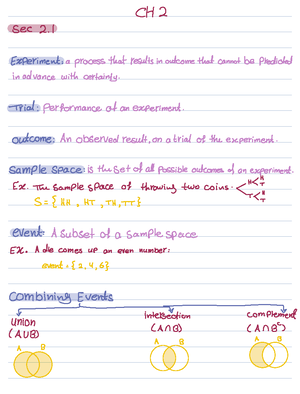 CH 2
Sec 2.1
Experiment: a process that results in outcome that cannot be Predicted
in advance with certainty.
Trial: Performance of an experiment.
outcome: An observed result, on a trial of the experiment.
Sample space: is the set of all possible outcomes of an experiment.
Ex. The sample space of throwing two coins.
H
H
T
T
H
T
S = { HH , HT , TH, TT }
event A subset of a sample space
Ex. A die comes up an even number:
event = { 2, 4, 6 }
Combining Events
Union
Intersection
complement
(A∪B)
(A∩B)
(A∩Bᶜ)
A B
A B
A B